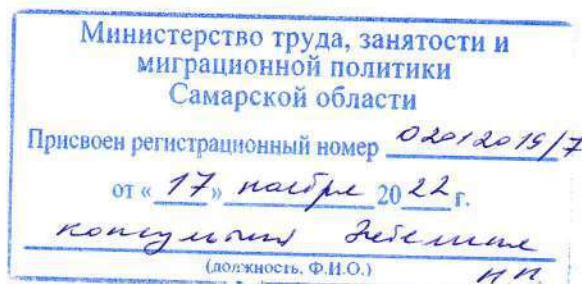 Министерство труда, занятости и
миграционной политики
Самарской области
Присвоен регистрационный номер 02012019/7
от « 17 » ноября 2022 г.
консультант
(должность, Ф.И.О.)